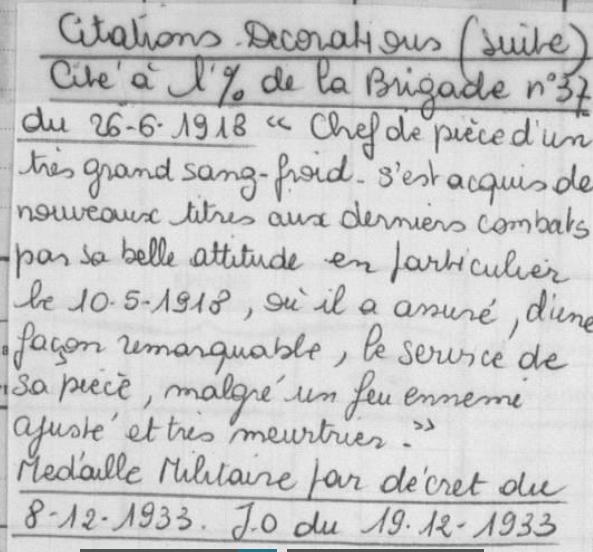 Citations. Décorations (suite)
Cité à l'% de la Brigade n°37
du 26-6-1918 « Chef de pièce d'un
très grand sang-froid - s'est acquis de
nouveaux titres aux derniers combats
par sa belle attitude en particulier
le 10-5-1918, où il a assuré, d'une
façon remarquable, le service de
sa pièce, malgré un feu ennemi
ajusté et très meurtrier. »
Médaille Militaire par décret du
8-12-1933. J.O du 19-12-1933